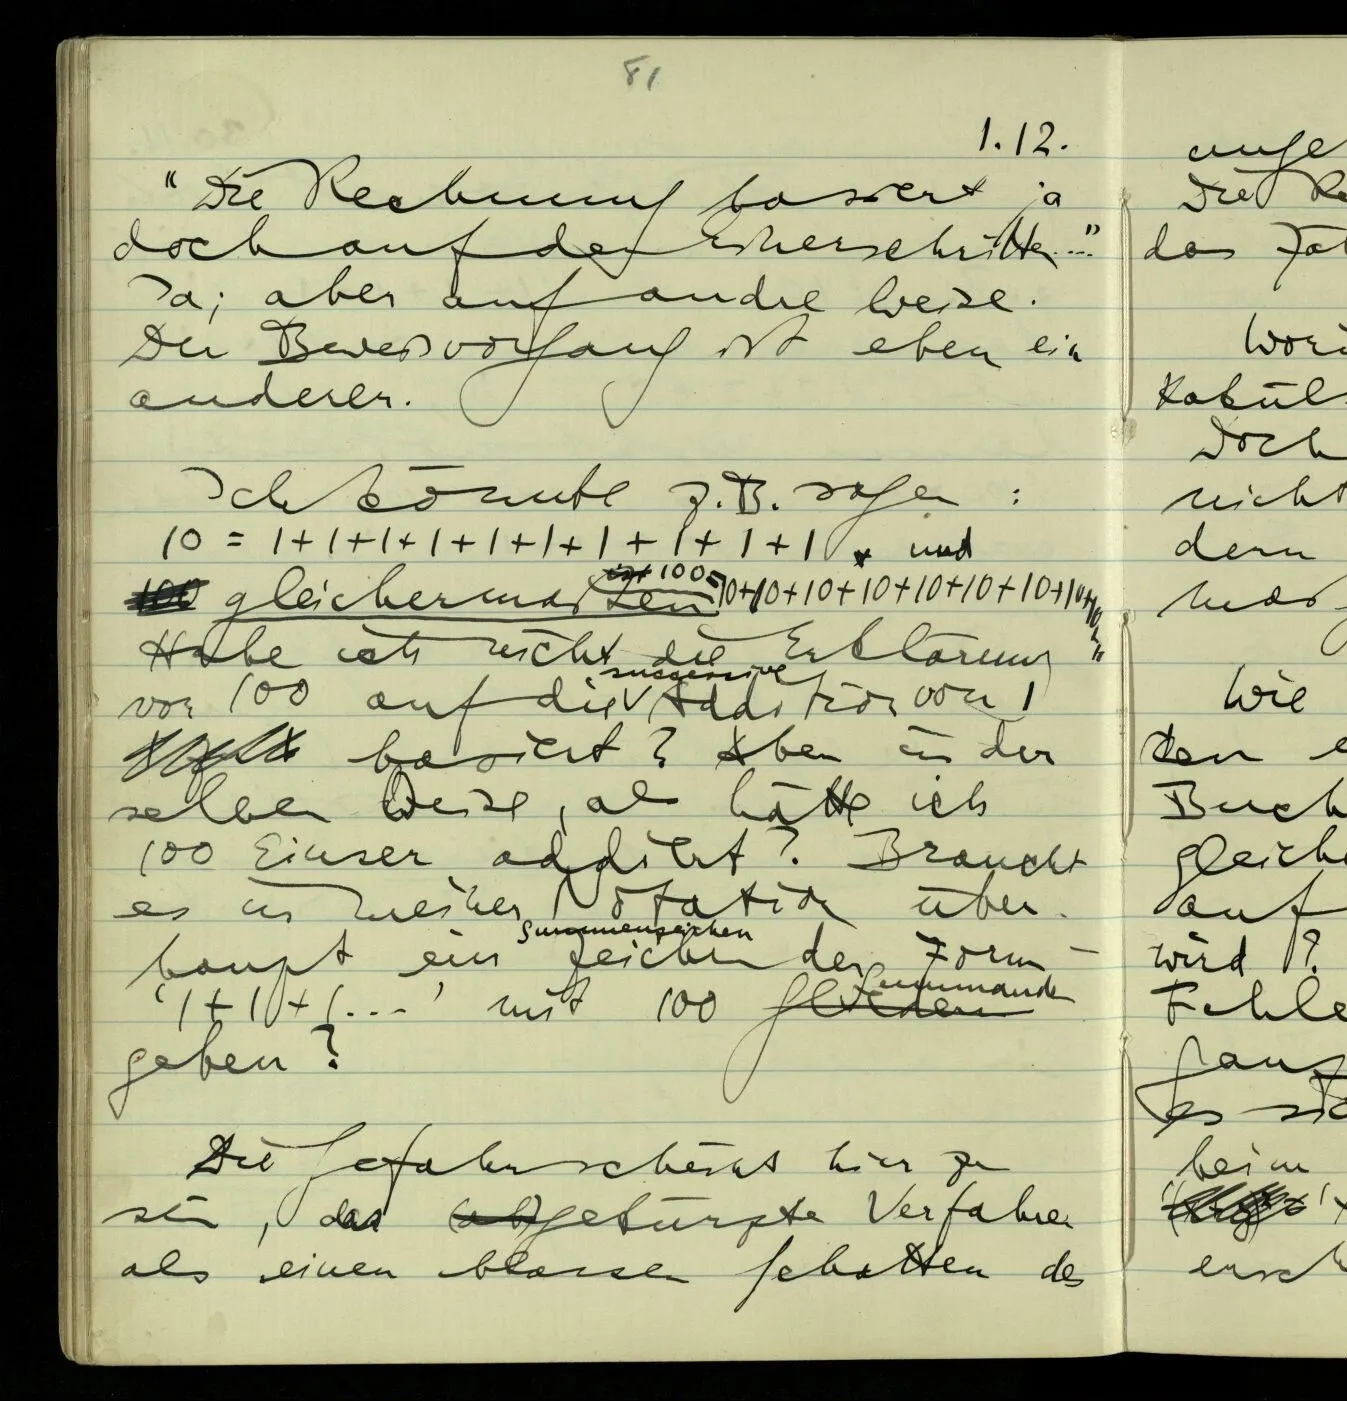 81
1.12.
"Die Rechnung basiert ja
doch auf den Einerschritten..."
Ja; aber auf andre Weise.
Der Beweisvorgang ist eben ein
anderer.
Ich könnte z.B. sagen :
10 = 1+1+1+1+1+1+1+1+1+1 und
100 gleichermaßen ist 100 = 10+10+10+10+10+10+10+10+10+10"
Habe ich nicht die Erklärung
von 100 auf die successive Addition von 1
basiert? Aber in der
selben Weise, als hätte ich
100 Einser addiert? Braucht
es in meiner Notation über-
haupt ein Summenzeichen Zeichen der Form –
'1+1+1...' mit 100 Gliedern Summanden
geben?
Die Gefahr scheint hier zu
sein, das (ab)gekürzte Verfahren
als einen blassen Schatten des
ange
Die Re
das
Wori
Doch
nicht
dern
was
Wie
den
Buch
gleich
auf
wird?
Fehle
ganz
es sic
beim
ersch